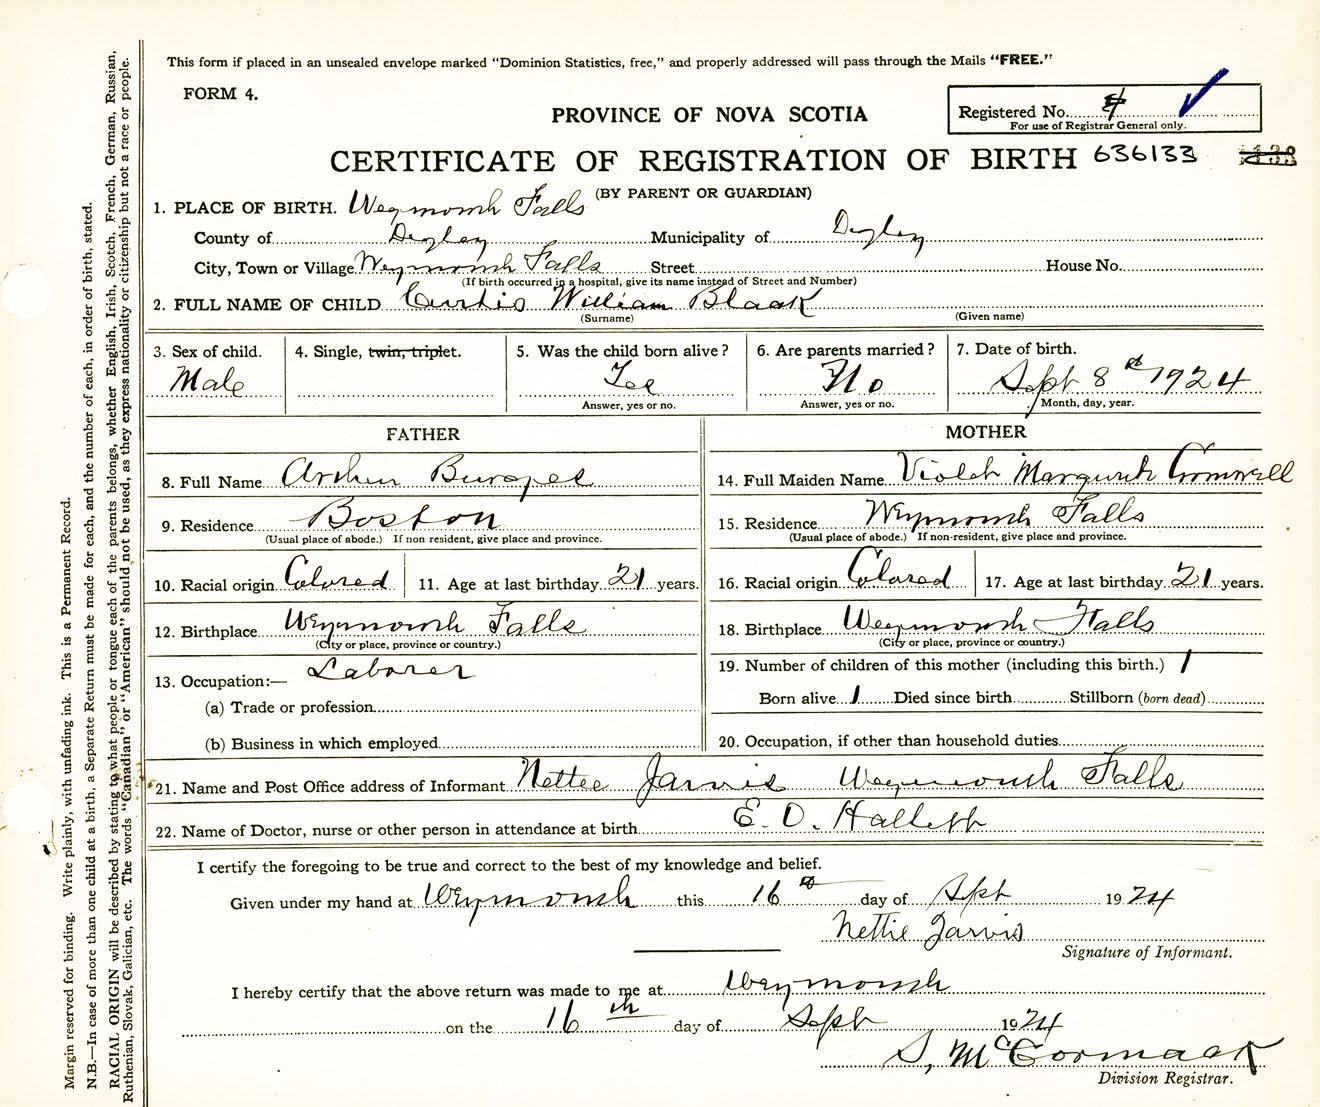 This form if placed in an unsealed envelope marked "Dominion Statistics, free," and properly addressed will pass through the Mails "FREE."
FORM 4.
PROVINCE OF NOVA SCOTIA
Registered No. 4
For use of Registrar General only.
CERTIFICATE OF REGISTRATION OF BIRTH 636133
(BY PARENT OR GUARDIAN)
1. PLACE OF BIRTH. Weymouth Falls
County of Digby Municipality of Digby
City, Town or Village Weymouth Falls Street House No.
(If birth occurred in a hospital, give its name instead of Street and Number)
2. FULL NAME OF CHILD Curtis William Black
(Surname) (Given name)
3. Sex of child. 4. Single, twin, triplet. 5. Was the child born alive? 6. Are parents married? 7. Date of birth.
Male Yes No Sept 8th 1924
Answer, yes or no. Answer, yes or no. Month, day, year.
FATHER
8. Full Name Arthur
9. Residence Boston
(Usual place of abode.) If non resident, give place and province.
10. Racial origin Colored 11. Age at last birthday 21 years.
12. Birthplace Weymouth Falls
(City or place, province or country.)
13. Occupation:— Laborer
(a) Trade or profession
(b) Business in which employed
MOTHER
14. Full Maiden Name Violet Cromwell
15. Residence Weymouth Falls
(Usual place of abode.) If non-resident, give place and province.
16. Racial origin Colored 17. Age at last birthday 21 years.
18. Birthplace Weymouth Falls
(City or place, province or country.)
19. Number of children of this mother (including this birth.) 1
Born alive 1 Died since birth Stillborn (born dead)
20. Occupation, if other than household duties
21. Name and Post Office address of Informant Nettie Jarvis Weymouth Falls
22. Name of Doctor, nurse or other person in attendance at birth E. O. Hallett
I certify the foregoing to be true and correct to the best of my knowledge and belief.
Given under my hand at Weymouth this 16th day of Sept 1924
Nettie Jarvis
Signature of Informant.
I hereby certify that the above return was made to me at Weymouth
on the 16th day of Sept 1924
S, McCormack
Division Registrar.
Margin reserved for binding. Write plainly, with unfading ink. This is a Permanent Record.
N.B.—In case of more than one child at a birth, a Separate Return must be made for each, and the number of each, in order of birth, stated.
RACIAL ORIGIN will be described by stating to what people or tongue each of the parents belongs, whether English, Irish, Scotch, French, German, Russian,
Ruthenian, Slovak, Galician, etc. The words "Canadian" or "American" should not be used, as they express nationality or citizenship but not a race or people.